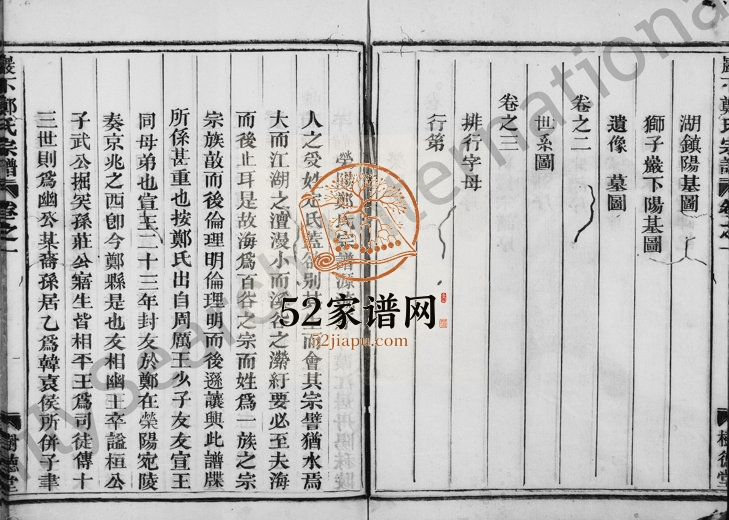 湖鎮陽基圖
獅子巖下陽基圖
遺像 墓圖
卷之二
世系圖
卷之三
排行字母
行第
滎陽鄭氏宗譜源
人之受姓定氏蓋欲別其而會其宗譬猶水焉
大而江湖之澶漫小而溪谷之瀠紆要必至夫海
而後止耳是故海爲百谷之宗而姓爲一族之宗
宗族敵而後倫理明倫理明而後遜讓興此譜牒
所係甚重也按鄭氏出自周厲王少子友友宣王
同母弟也宣王二十三年封友於鄭在滎陽宛陵
奏京兆之西卽今鄭縣是也友相幽王卒諡桓公
子武公掘突孫莊公寤生皆相平王爲司徒傳十
三世則爲幽公某裔孫居乙爲韓哀侯所併子聿
巖下鄭氏宗譜 卷之一
樹德堂
52家谱网
52jiapu.com
International